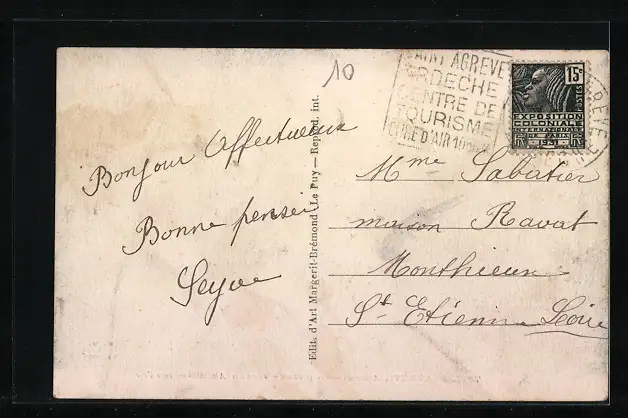 10
SAINT AGREVE
ARDECHE
CENTRE DE
TOURISME
CURE D'AIR
15c
POSTES
EXPOSITION
COLONIALE
INTERNATIONALE
DE PARIS
1931
Bonjour Affectueux
Bonne pensée
Edit. d'Art Margerit-Brémond, Le Puy — Reprod. int.
Mme Sabatier
maison Ravat
Monthieux
St Etienne Loire